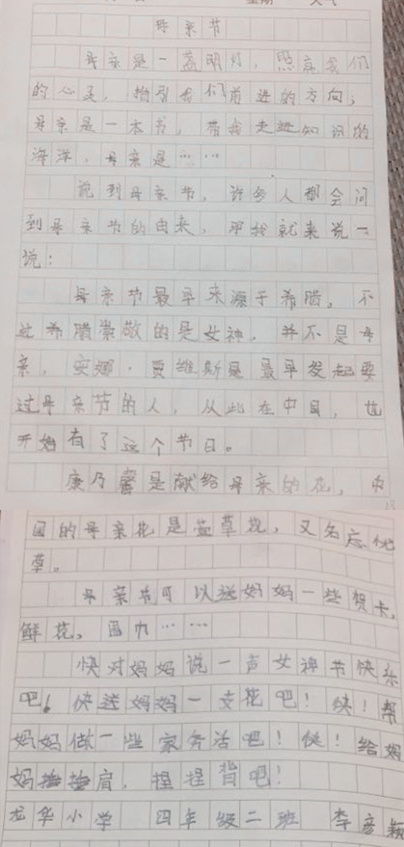 星期 天气
母亲节
母亲是一盏明灯，照亮我们
的心灵，指引我们前进的方向；
母亲是一本书，带我走进知识的
海洋，母亲是……
说到母亲节，许多人都会问
到母亲节的由来，那我就来说一
说：
母亲节最早来源于希腊，不
过希腊崇敬的是女神，并不是母
亲，安娜·贾维斯是最早发起要
过母亲节的人，从此在中国，也
开始有了这个节日。
康乃馨是献给母亲的花，中
国的母亲花是萱草花，又名忘忧
草。
母亲节可以送妈妈一些贺卡，
鲜花，围巾……
快对妈妈说一声女神节快乐
吧！快送妈妈一支花吧！快！帮
妈妈做一些家务活吧！快！给妈
妈揉揉肩，捏捏背吧！
龙华小学 四年级二班 李彦颖